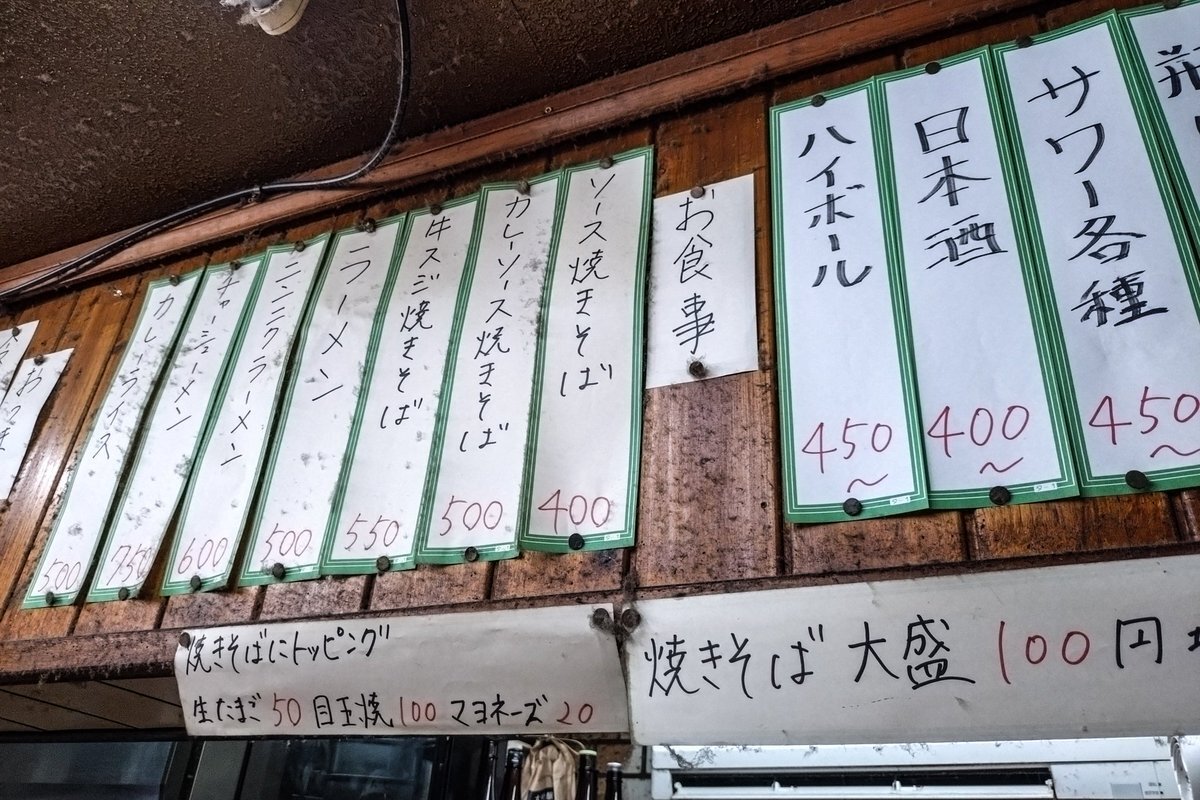 サワー各種
450〜
日本酒
400〜
ハイボール
450〜
お食事
ソース焼きそば
400
カレーソース焼きそば
500
牛スジ焼きそば
550
ラーメン
500
ニンニクラーメン
600
チャーシューメン
750
カレーライス
500
焼きそばにトッピング
生たまご50 目玉焼100 マヨネーズ20
焼きそば 大盛 100円